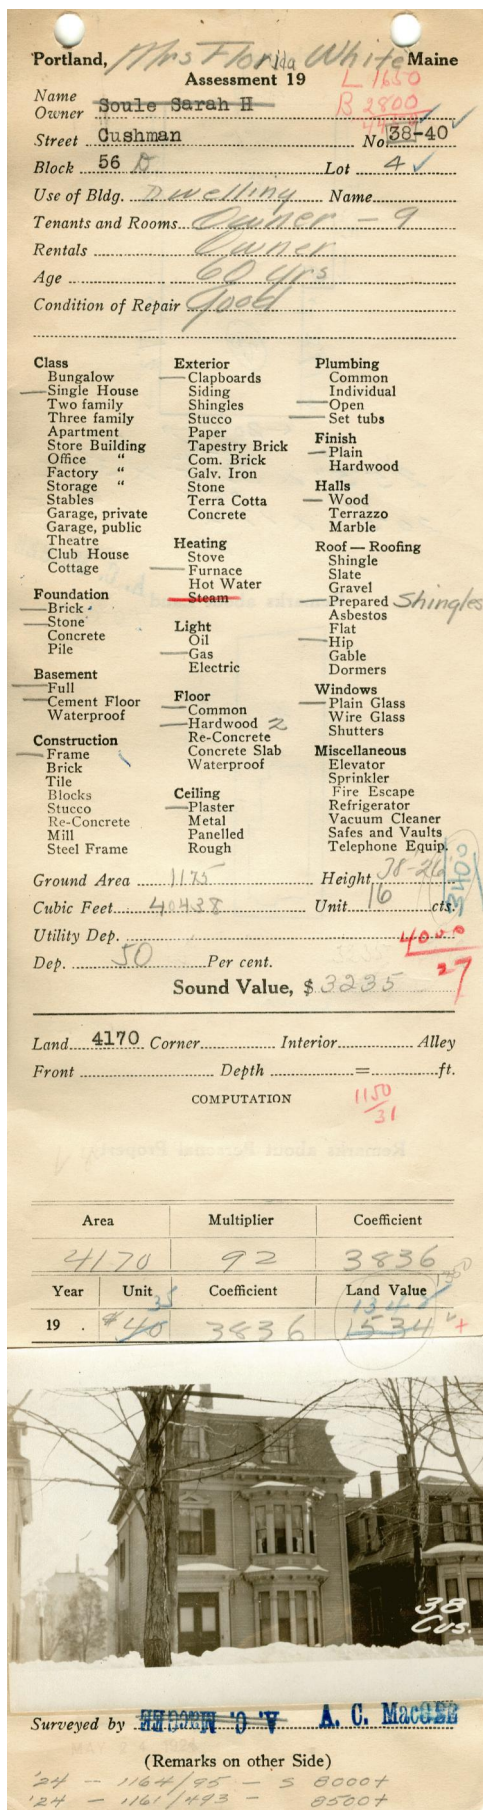 Portland, Mrs Florida White Maine
Assessment 19
L 1650
B 2800
Name
Owner Soule Sarah H
Street Cushman No 38-40
Block 56 D Lot 4
Use of Bldg. Dwelling Name
Tenants and Rooms Owner - 9
Rentals Owner
Age 60 yrs
Condition of Repair Good
Class
Bungalow
Single House
Two family
Three family
Apartment
Store Building
Office "
Factory "
Storage "
Stables
Garage, private
Garage, public
Theatre
Club House
Cottage
Foundation
Brick
Stone
Concrete
Pile
Basement
Full
Cement Floor
Waterproof
Construction
Frame
Brick
Tile
Blocks
Stucco
Re-Concrete
Mill
Steel Frame
Exterior
Clapboards
Siding
Shingles
Stucco
Paper
Tapestry Brick
Com. Brick
Galv. Iron
Stone
Terra Cotta
Concrete
Heating
Stove
Furnace
Hot Water
Steam
Light
Oil
Gas
Electric
Floor
Common
Hardwood 2
Re-Concrete
Concrete Slab
Waterproof
Ceiling
Plaster
Metal
Panelled
Rough
Plumbing
Common
Individual
Open
Set tubs
Finish
Plain
Hardwood
Halls
Wood
Terrazzo
Marble
Roof — Roofing
Shingle
Slate
Gravel
Prepared Shingles
Asbestos
Flat
Hip
Gable
Dormers
Windows
Plain Glass
Wire Glass
Shutters
Miscellaneous
Elevator
Sprinkler
Fire Escape
Refrigerator
Vacuum Cleaner
Safes and Vaults
Telephone Equip.
Ground Area 1175 Height 38-26
Cubic Feet 40438 Unit 16 cts.
Utility Dep. 4000
Dep. 50 Per cent. 27
Sound Value, $ 3235
Land 4170 Corner Interior Alley
Front Depth = ft.
COMPUTATION
1150
31
Area Multiplier Coefficient
4170 92 3836
Year Unit Coefficient Land Value
35 1342
19 . $40 3836 1534 +
38
Cus.
Surveyed by A. C. MacGEE A. C. MacGEE
(Remarks on other Side)
'24 - 1164/95 - S 8000+
'24 - 1161/493 - 8500+